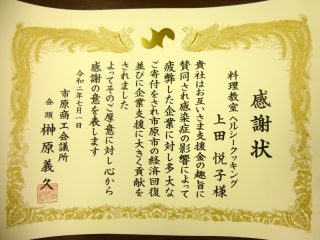 感謝状
料理教室 ヘルシークッキング
上田 悦子 様
貴社はお互いさま支援金の趣旨に
賛同され感染症の影響によって
疲弊した企業に対し多大な
ご寄付をされ市原市の経済回復
並びに企業支援に大きく貢献を
されました
よってそのご厚意に対し心から
感謝の意を表します
令和二年七月一日
市原商工会議所
会頭 榊原義久